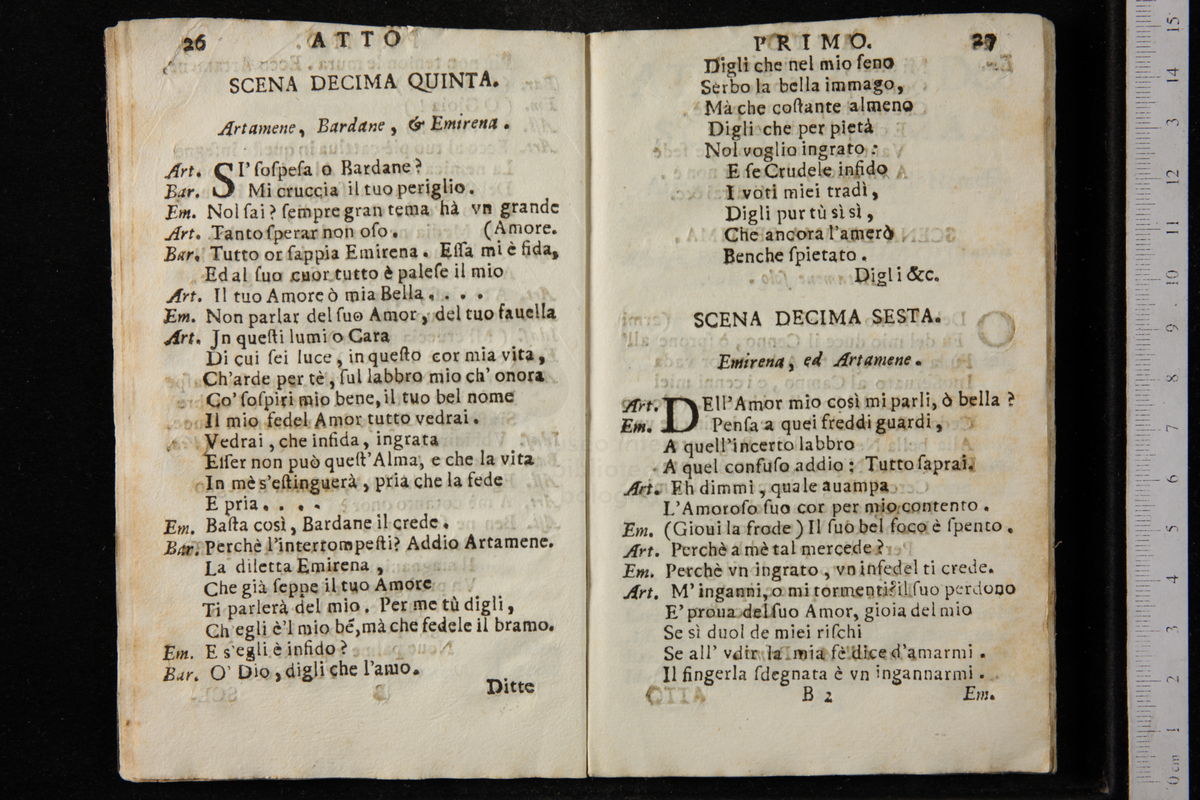 26 ATTO
SCENA DECIMA QUINTA.
Artamene, Bardane, & Emirena.
Art. SI' ſoſpeſa o Bardane?
Bar. Mi cruccia il tuo periglio.
Em. Nol ſai? ſempre gran tema hà vn grande
Art. Tanto ſperar non oſo. (Amore.
Bar. Tutto or ſappia Emirena. Eſſa mi è fida,
Ed al ſuo cuor tutto è paleſe il mio
Art. Il tuo Amore ò mia Bella. . . .
Em. Non parlar del ſuo Amor, del tuo fauella
Art. Jn queſti lumi o Cara
Di cui ſei luce, in queſto cor mia vita,
Ch'arde per tè, ſul labbro mio ch' onora
Co' ſoſpiri mio bene, il tuo bel nome
Il mio fedel Amor tutto vedrai.
Vedrai, che infida, ingrata
Eſſer non può queſt'Alma, e che la vita
In mè s'eſtinguerà, pria che la fede
E pria. . . .
Em. Baſta così, Bardane il crede.
Bar. Perchè l'interrompeſti? Addio Artamene.
La diletta Emirena,
Che già ſeppe il tuo Amore
Ti parlerà del mio. Per me tù digli,
Ch egli è'l mio bé, mà che fedele il bramo.
Em. E s'egli è infido?
Bar. O' Dio, digli che l'amo.
Ditte
PRIMO. 27
Digli che nel mio ſeno
Serbo la bella immago,
Mà che coſtante almeno
Digli che per pietà
Nol voglio ingrato:
E ſe Crudele infido
I voti miei tradì,
Digli pur tù sì sì,
Che ancora l'amerò
Benche ſpietato.
Digli &c.
SCENA DECIMA SESTA.
Emirena, ed Artamene.
Art. DEll'Amor mio così mi parli, ò bella?
Em. Penſa a quei freddi guardi,
A quell'incerto labbro
A quel confuſo addio: Tutto ſaprai.
Art. Eh dimmi, quale auampa
L'Amoroſo ſuo cor per mio contento.
Em. (Gioui la frode) Il ſuo bel foco è ſpento.
Art. Perchè a mè tal mercede?
Em. Perchè vn ingrato, vn infedel ti crede.
Art. M' inganni, o mi tormenti? il ſuo perdono
E' proua del ſuo Amor, gioia del mio
Se sì duol de miei riſchi
Se all' vdir la mia fè dice d'amarmi.
Il fingerla ſdegnata è vn ingannarmi.
B 2 Em.